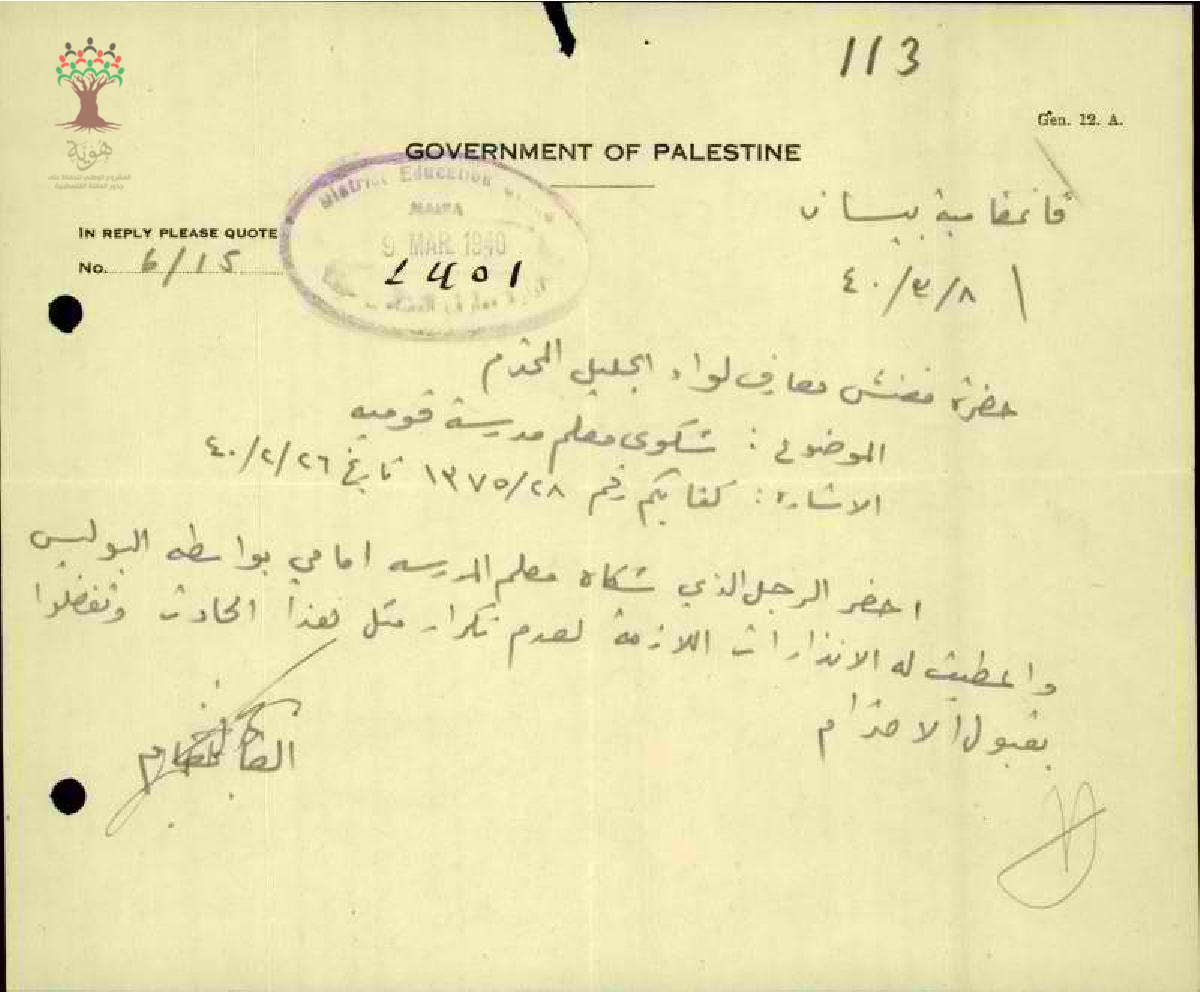 113
Gen. 12. A.
GOVERNMENT OF PALESTINE
هوية
المشروع الوطني للحفاظ على
جذور العائلة الفلسطينية
IN REPLY PLEASE QUOTE
No. 6/15
District Education
HAIFA
9 MAR. 1940
قائمقامية بيسان
٤٠/٣/٨
حضرة مفتش معارف لواء الجليل المحترم
الموضوع : شكوى معلم مدرسة قومية
الاشارة : كتابكم رقم ١٣٧٥/٢٨ تاريخ ٤٠/٢/٢٦
احضر الرجل الذي شكاه معلم المدرسه امامي بواسطه البوليس
واعطيت له الانذارات اللازمة لعدم تكرار مثل هذا الحادث وتفضلوا
بقبول الاحترام
القائمقام